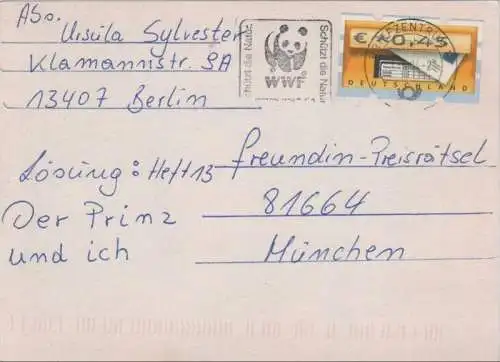 ASo.
Ursula Sylvester
Klamannstr. 9A
13407 Berlin
Schützt die Natur
WWF
Schützt die Natur
BRIEFZENTRUM
€ *0,45
DEUTSCHLAND
Lösung: Heft 13
Der Prinz
und ich
freundin-Preisrätsel
81664
München